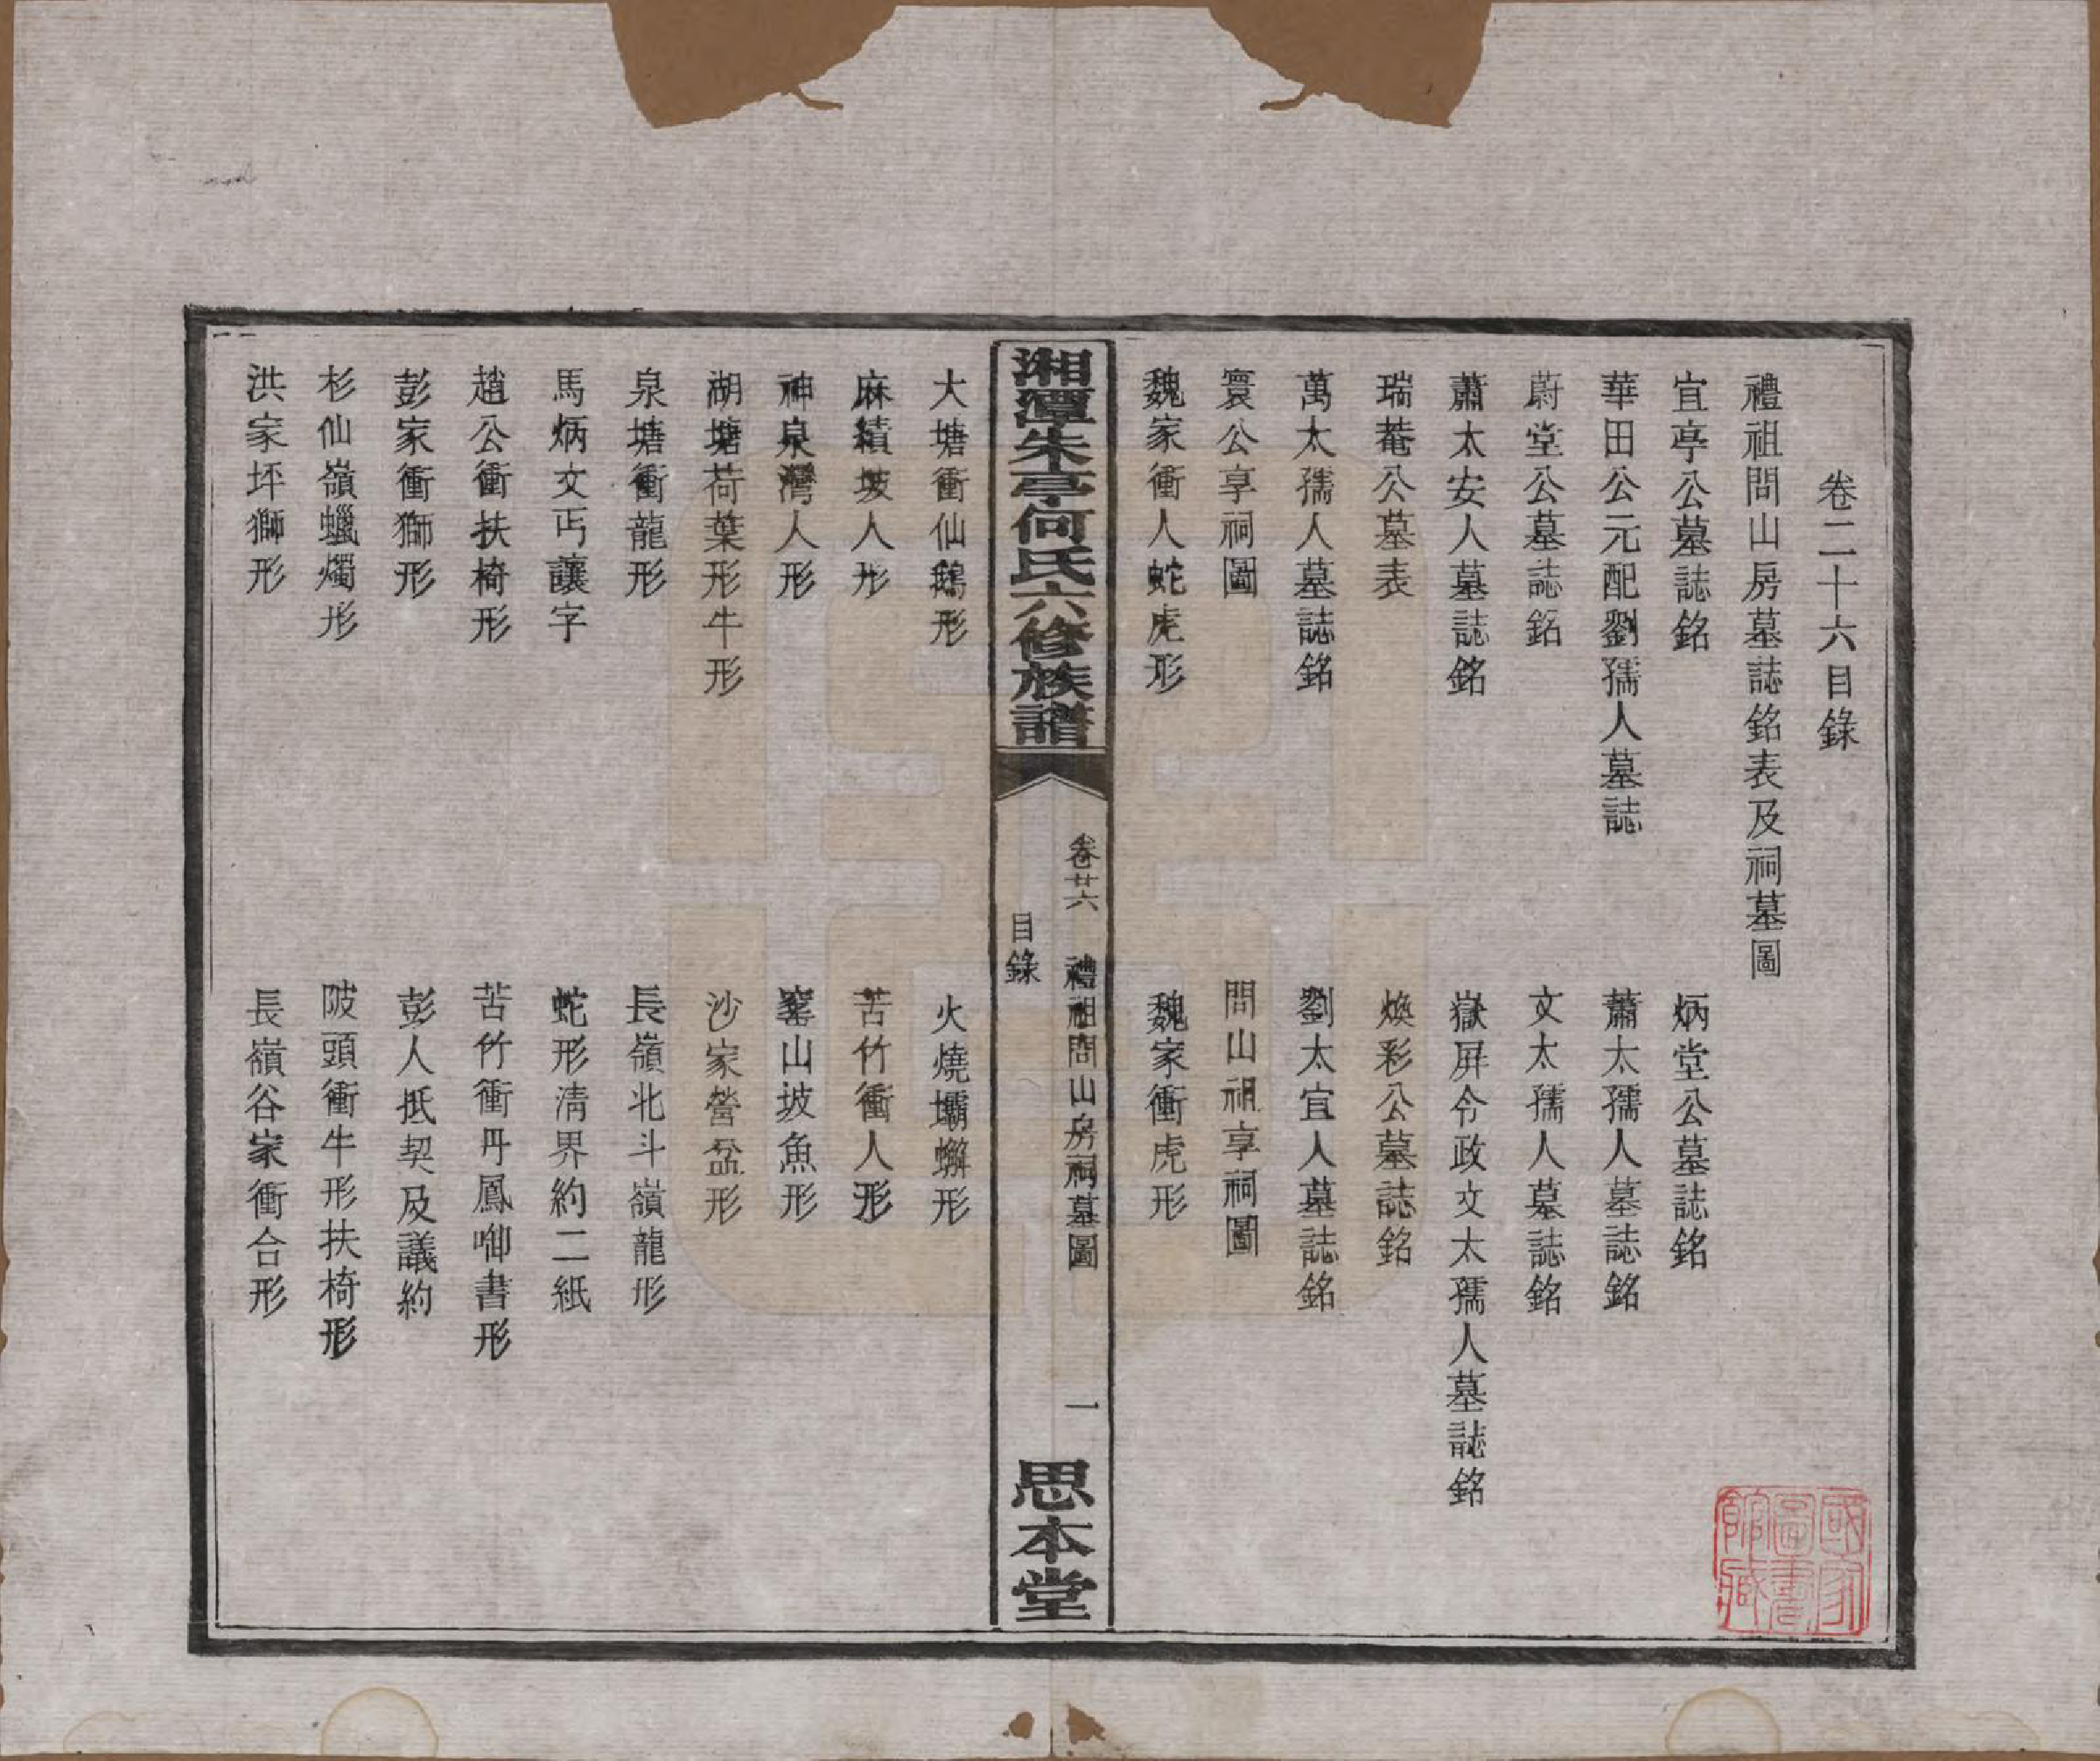 卷二十六目錄
禮祖問山房墓誌銘表及祠墓圖
宜亭公墓誌銘　炳堂公墓誌銘
華田公元配劉孺人墓誌　蕭太孺人墓誌銘
蔚堂公墓誌銘　文太孺人墓誌銘
蕭太安人墓誌銘　嶽屏令政文太孺人墓誌銘
瑞菴公墓表　煥彩公墓誌銘
萬太孺人墓誌銘　劉太宜人墓誌銘
寰公享祠圖　問山祖享祠圖
魏家衝人蛇虎形　魏家衝虎形
湘潭朱亭何氏六修族譜
卷廿六　禮祖問山房祠墓圖
目錄
一
思本堂
大塘衝仙鵝形　火燒壩螃形
麻績坡人形　苦竹衝人形
神泉灣人形　窰山坡魚形
湖塘荷葉形牛形　沙家營盆形
泉塘衝龍形　長嶺北斗嶺龍形
馬炳文丐讓字　蛇形清界約二紙
趙公衝扶椅形　苦竹衝丹鳳啣書形
彭家衝獅形　彭人抵契及議約
杉仙嶺蠟燭形　陂頭衝牛形扶椅形
洪家坪獅形　長嶺谷家衝合形
國家圖書館藏